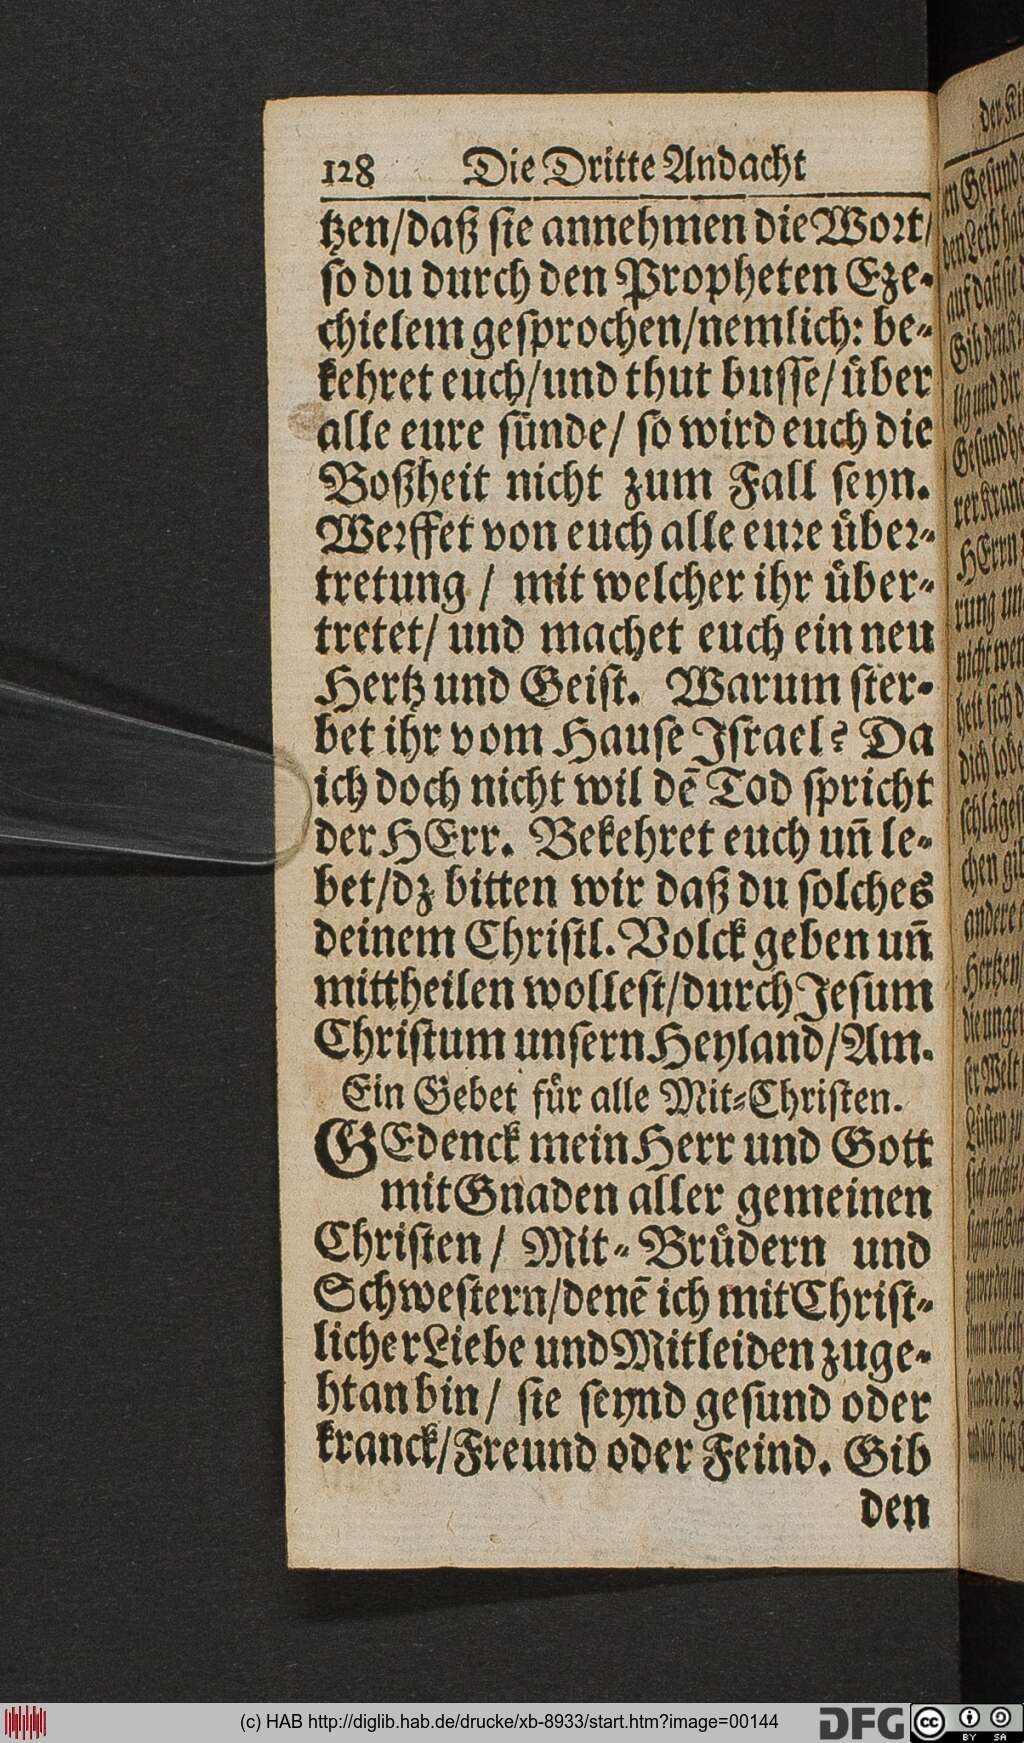 128 Die Dritte Andacht
tzen/daß sie annehmen die Wort/
so du durch den Propheten Eze-
chielem gesprochen/nemlich: be-
kehret euch/und thut busse/ uͤber
alle eure suͤnde/ so wird euch die
Boßheit nicht zum Fall seyn.
Werffet von euch alle eure uͤber-
tretung / mit welcher ihr uͤber-
tretet/ und machet euch ein neu
Hertz und Geist. Warum ster-
bet ihr vom Hause Israel? Da
ich doch nicht wil dē Tod spricht
der HErr. Bekehret euch un̄ le-
bet/dz bitten wir daß du solches
deinem Christl. Volck geben un̄
mittheilen wollest/durch Jesum
Christum unsern Heyland/Am.
Ein Gebet fuͤr alle Mit-Christen.
GEdenck mein Herr und Gott
mit Gnaden aller gemeinen
Christen / Mit-Bruͤdern und
Schwestern/denē ich mit Christ-
licher Liebe und Mitleiden zuge-
htan bin/ sie seynd gesund oder
kranck/Freund oder Feind. Gib
den
(c) HAB http://diglib.hab.de/drucke/xb-8933/start.htm?image=00144
DFG
cc BY SA